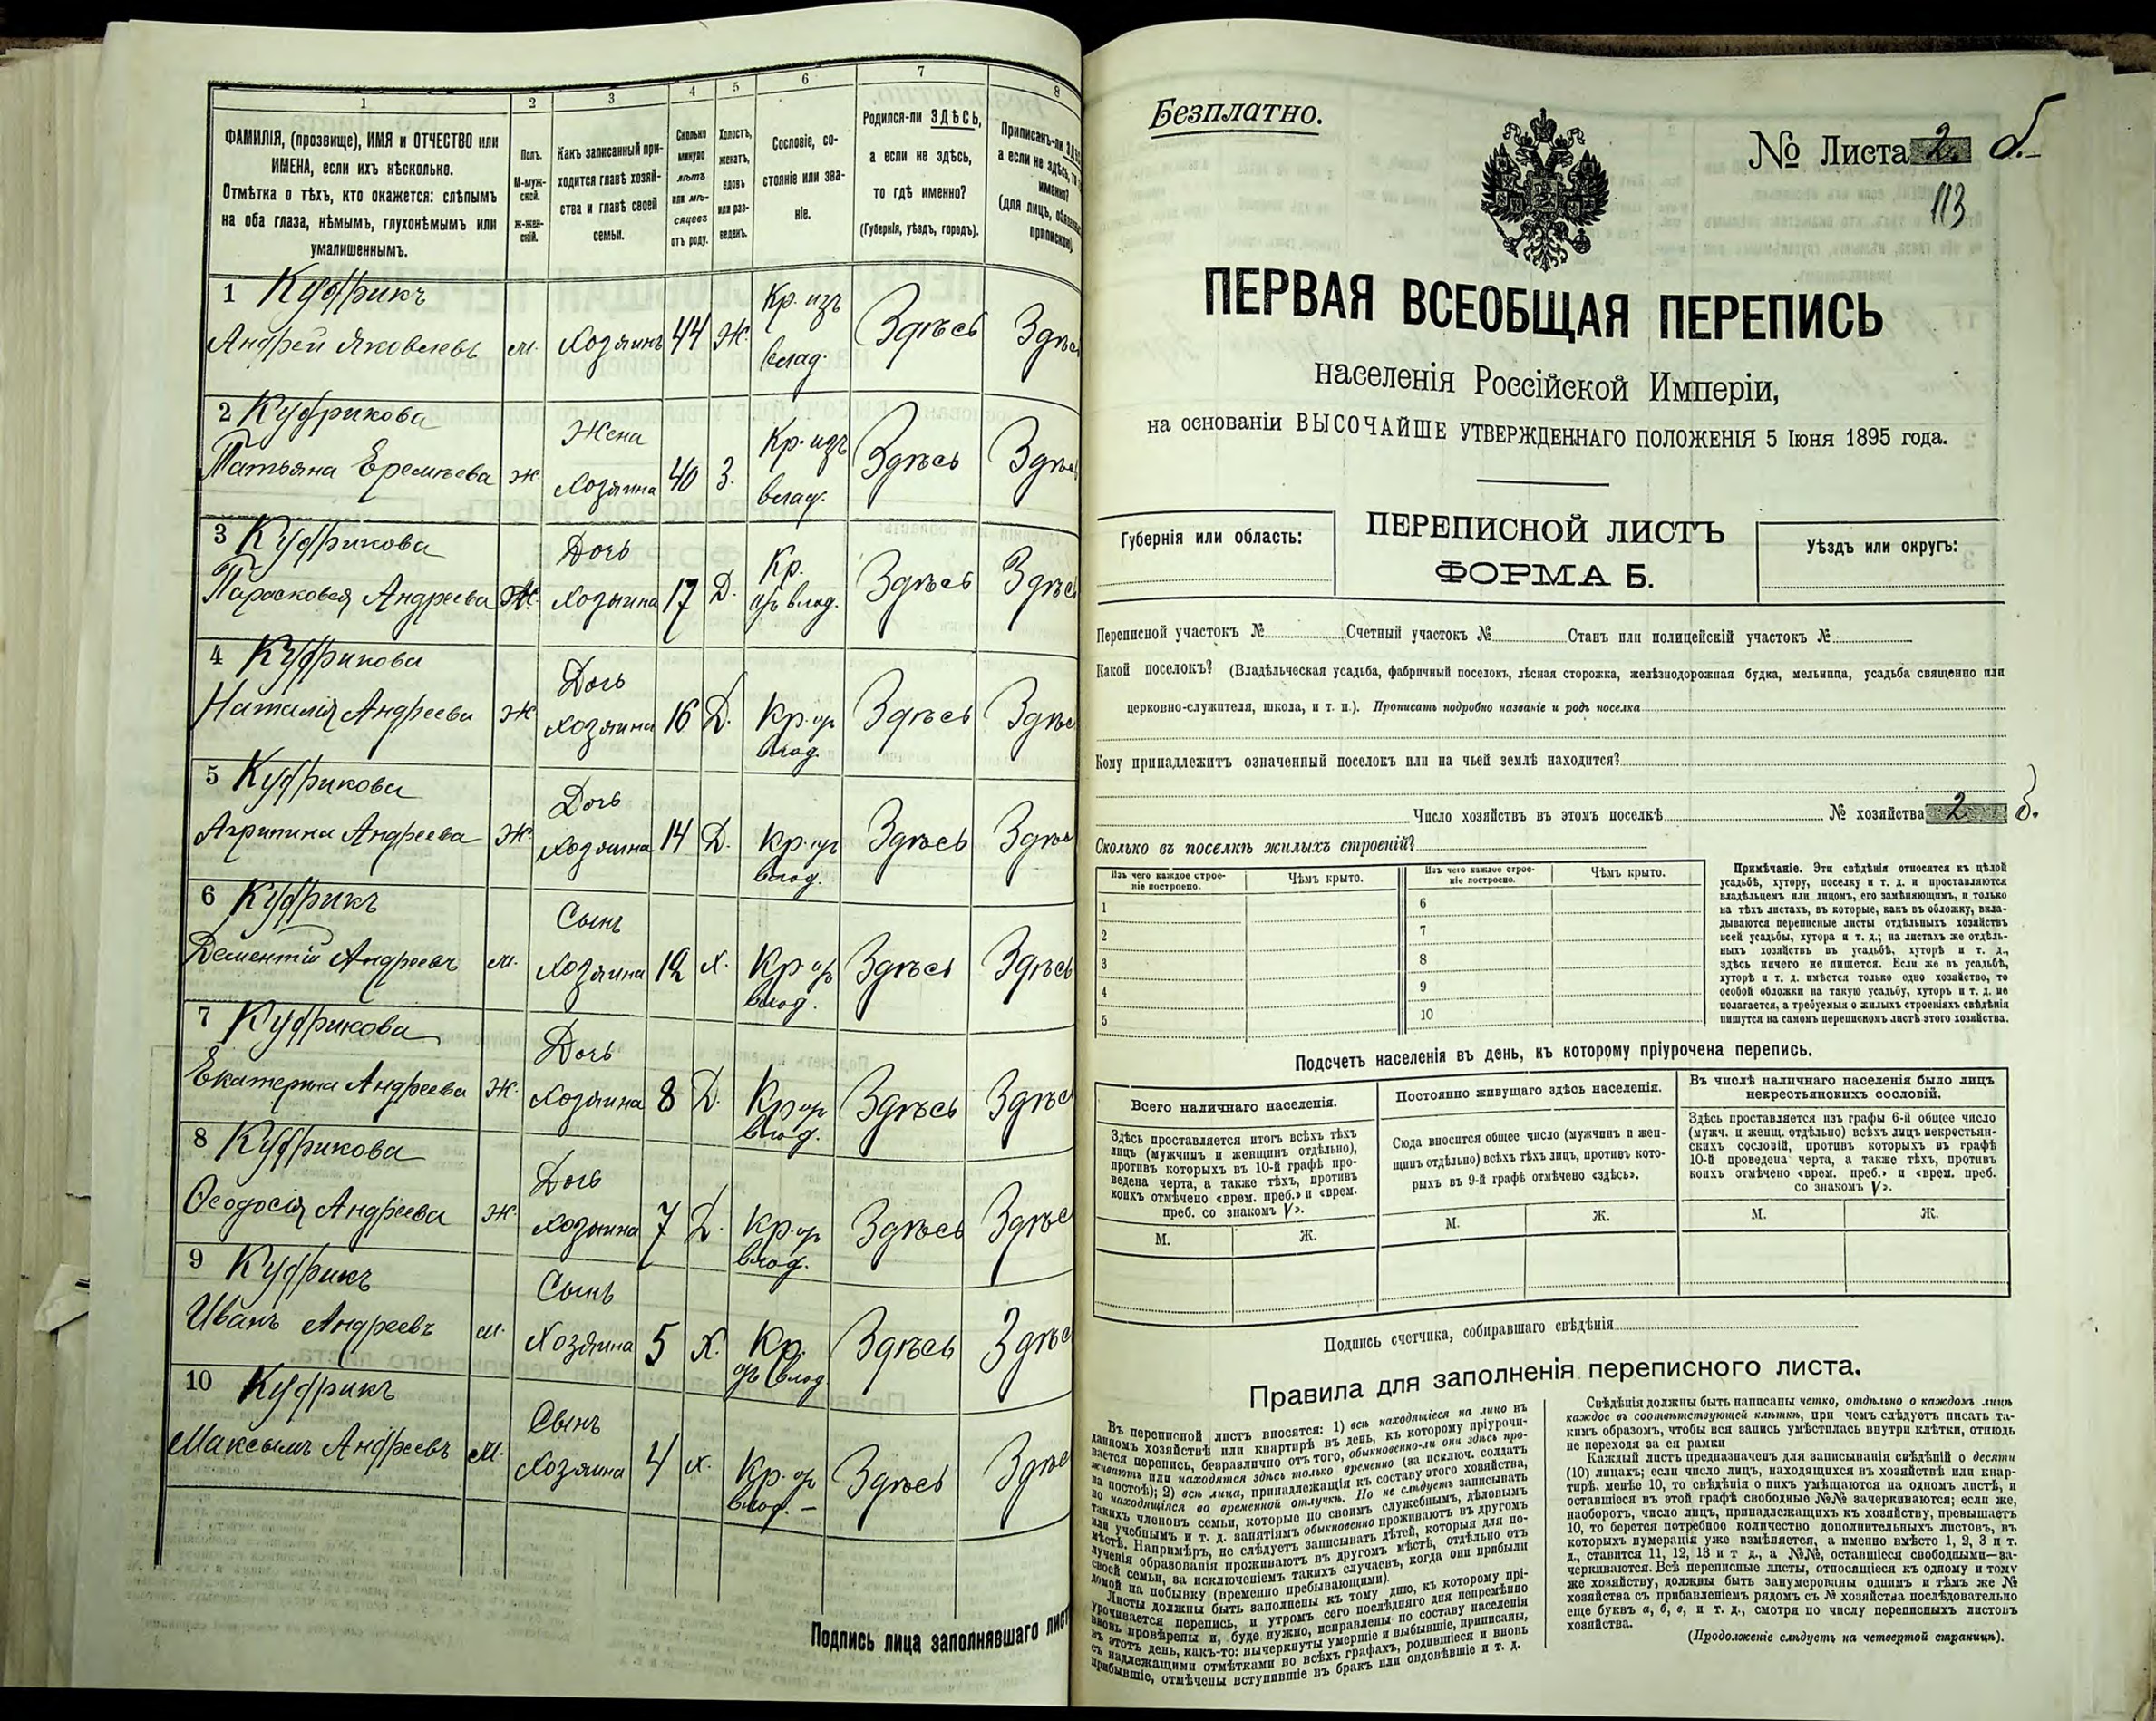 1
2
3
4
5
6
7
8
ФАМИЛІЯ, (прозвище), ИМЯ и ОТЧЕСТВО или
ИМЕНА, если ихъ нѣсколько.
Отмѣтка о тѣхъ, кто окажется: слѣпымъ
на оба глаза, нѣмымъ, глухонѣмымъ или
умалишеннымъ.
Полъ.
М-муж-
ской.
Ж-жен-
скій.
Какъ записанный при-
ходится главѣ хозяй-
ства и главѣ своей
семьи.
Сколько
минуло
лѣтъ
или мѣ-
сяцевъ
отъ роду.
Холостъ,
женатъ,
вдовъ
или раз-
веденъ.
Сословіе, со-
стояніе или зва-
ніе.
Родился-ли ЗДѢСЬ,
а если не здѣсь,
то гдѣ именно?
(Губернія, уѣздъ, городъ).
Приписанъ-ли
а если не здѣсь, то
именно?
(для лицъ,
1 Кудрикъ
Андрей Яковлевъ м. Хозяинъ 44 Ж. Кр. изъ влад. Здѣсь
2 Кудрикова
Татьяна Еремѣева ж Жена Хозяина 40 З. Кр. изъ влад. Здѣсь
3 Кудрикова
Парасковея Андреева Ж. Дочь Хозяина 17 Д. Кр. изъ влад. Здѣсь
4 Кудрикова
Наталія Андреева Ж Дочь Хозяина 16 Д. Кр. из влад. Здѣсь
5 Кудрикова
Агрипина Андреева Ж Дочь Хозяина 14 Д. Кр. из влад. Здѣсь
6 Кудрикъ
Дементій Андреевъ м. Сынъ Хозяина 12 Х. Кр из влад. Здѣсь Здѣсь
7 Кудрикова
Екатерина Андреева Ж. Дочь Хозяина 8 Д. Кр из влад. Здѣсь
8 Кудрикова
Ѳеодосія Андреева Ж. Дочь Хозяина 7 Д. Кр. из влад. Здѣсь
9 Кудрикъ
Иванъ Андреевъ м. Сынъ Хозяина 5 Х. Кр. изъ влад. Здѣсь
10 Кудрикъ
Максымъ Андреевъ М. Сынъ Хозяина 4 Х. Кр. из влад. Здѣсь
Подпись лица заполнявшаго
Безплатно.
№ Листа 2. б.
113
ПЕРВАЯ ВСЕОБЩАЯ ПЕРЕПИСЬ
населенія Россійской Имперіи,
на основаніи ВЫСОЧАЙШЕ УТВЕРЖДЕННАГО ПОЛОЖЕНІЯ 5 Іюня 1895 года.
Губернія или область:
ПЕРЕПИСНОЙ ЛИСТЪ
ФОРМА Б.
Уѣздъ или округъ:
Переписной участокъ № Счетный участокъ № Станъ или полицейскій участокъ №
Какой поселокъ? (Владѣльческая усадьба, фабричный поселокъ, лѣсная сторожка, желѣзнодорожная будка, мельница, усадьба священно или
церковно-служителя, школа, и т. п.). Прописать подробно названіе и родъ поселка
Кому принадлежитъ означенный поселокъ или на чьей землѣ находится?
Число хозяйствъ въ этомъ поселкѣ № хозяйства 2 б.
Сколько въ поселкѣ жилыхъ строеній?
Изъ чего каждое строе-
ніе построено.
Чѣмъ крыто.
Изъ чего каждое строе-
ніе построено.
Чѣмъ крыто.
1 6
2 7
3 8
4 9
5 10
Примѣчаніе. Эти свѣдѣнія относятся къ цѣлой
усадьбѣ, хутору, поселку и т. д. и проставляются
владѣльцемъ или лицомъ, его замѣняющимъ, и только
на тѣхъ листахъ, въ которые, какъ въ обложку, вкла-
дываются переписные листы отдѣльныхъ хозяйствъ
всей усадьбы, хутора и т. д.; на листахъ же отдѣль-
ныхъ хозяйствъ въ усадьбѣ, хуторѣ и т. д.,
здѣсь ничего не пишется. Если же въ усадьбѣ,
хуторѣ и т. д. имѣется только одно хозяйство, то
особой обложки на такую усадьбу, хуторъ и т. д. не
полагается, а требуемыя о жилыхъ строеніяхъ свѣдѣнія
пишутся на самомъ переписномъ листѣ этого хозяйства.
Подсчетъ населенія въ день, къ которому пріурочена перепись.
Всего наличнаго населенія.
Здѣсь проставляется итогъ всѣхъ тѣхъ
лицъ (мужчинъ и женщинъ отдѣльно),
противъ которыхъ въ 10-й графѣ про-
ведена черта, а также тѣхъ, противъ
коихъ отмѣчено «врем. преб.» и «врем.
преб. со знакомъ V».
М. Ж.
Постоянно живущаго здѣсь населенія.
Сюда вносится общее число (мужчинъ и жен-
щинъ отдѣльно) всѣхъ тѣхъ лицъ, противъ кото-
рыхъ въ 9-й графѣ отмѣчено «здѣсь».
М. Ж.
Въ числѣ наличнаго населенія было лицъ
некрестьянскихъ сословій.
Здѣсь проставляется изъ графы 6-й общее число
(мужч. и женщ. отдѣльно) всѣхъ лицъ некрестьян-
скихъ сословій, противъ которыхъ въ графѣ
10-й проведена черта, а также тѣхъ, противъ
коихъ отмѣчено «врем. преб.» и «врем. преб.
со знакомъ V».
М. Ж.
Подпись счетчика, собиравшаго свѣдѣнія
Правила для заполненія переписного листа.
Въ переписной листъ вносятся: 1) всѣ находящіеся на лицо въ
данномъ хозяйствѣ или квартирѣ въ день, къ которому пріурочи-
вается перепись, безразлично отъ того, обыкновенно-ли они здѣсь про-
живаютъ или находятся здѣсь только временно (за исключ. солдатъ
на постоѣ); 2) всѣ лица, принадлежащія къ составу этого хозяйства,
но находящіяся во временной отлучкѣ. Но не слѣдуетъ записывать
такихъ членовъ семьи, которые по своимъ служебнымъ, дѣловымъ
или учебнымъ и т. д. занятіямъ обыкновенно проживаютъ въ другомъ
мѣстѣ. Напримѣръ, не слѣдуетъ записывать дѣтей, которыя для по-
лученія образованія проживаютъ въ другомъ мѣстѣ, отдѣльно отъ
своей семьи, за исключеніемъ такихъ случаевъ, когда они прибыли
домой на побывку (временно пребывающими).
Листы должны быть заполнены къ тому дню, къ которому прі-
урочивается перепись, и утромъ сего послѣдняго дня непремѣнно
вновь провѣрены и, буде нужно, исправлены по составу населенія
въ этотъ день, какъ-то: вычеркнуты умершіе и выбывшіе, приписаны,
съ надлежащими отмѣтками во всѣхъ графахъ, родившіеся и вновь
прибывшіе, отмѣчены вступившіе въ бракъ или овдовѣвшіе и т. д.
Свѣдѣнія должны быть написаны четко, отдѣльно о каждомъ лицѣ
каждое въ соотвѣтствующей клѣткѣ, при чемъ слѣдуетъ писать та-
кимъ образомъ, чтобы вся запись умѣстилась внутри клѣтки, отнюдь
не переходя за ея рамки
Каждый листъ предназначенъ для записыванія свѣдѣній о десяти
(10) лицахъ; если число лицъ, находящихся въ хозяйствѣ или квар-
тирѣ, менѣе 10, то свѣдѣнія о нихъ умѣщаются на одномъ листѣ, и
оставшіеся въ этой графѣ свободные №№ зачеркиваются; если же,
наоборотъ, число лицъ, принадлежащихъ къ хозяйству, превышаетъ
10, то берется потребное количество дополнительныхъ листовъ, въ
которыхъ нумерація уже измѣняется, а именно вмѣсто 1, 2, 3 и т.
д., ставится 11, 12, 13 и т д., а №№, оставшіеся свободными—за-
черкиваются. Всѣ переписные листы, относящіеся къ одному и тому
же хозяйству, должны быть занумерованы однимъ и тѣмъ же №
хозяйства съ прибавленіемъ рядомъ съ № хозяйства послѣдовательно
еще буквъ а, б, в, и т. д., смотря по числу переписныхъ листовъ
хозяйства.
(Продолженіе слѣдуетъ на четвертой страницѣ).